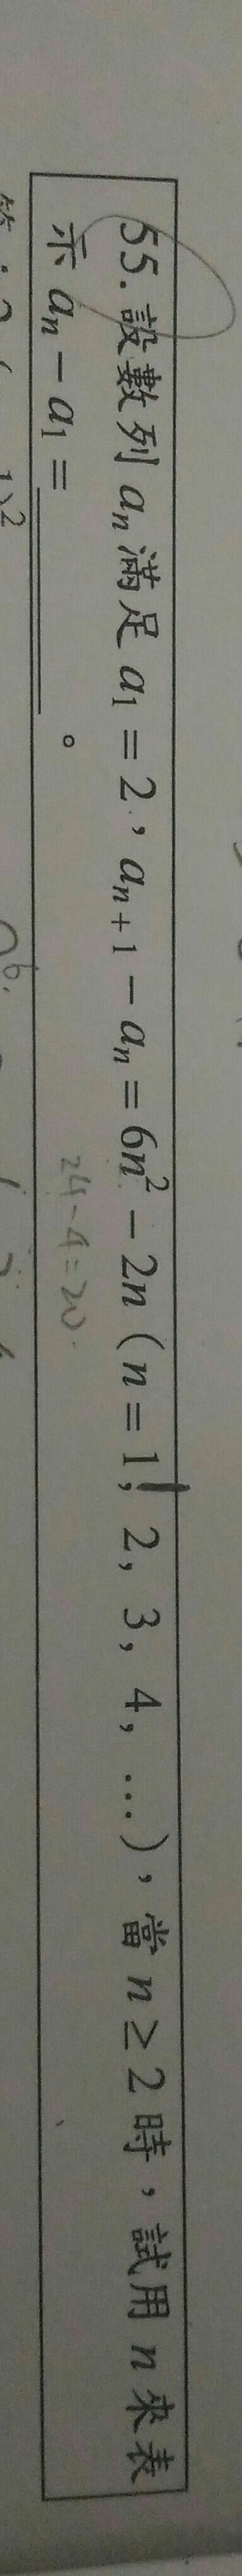 55. 設數列 aₙ 滿足 a₁ = 2，aₙ₊₁ − aₙ = 6n² − 2n (n = 1, 2, 3, 4, …)，當 n ≥ 2 時，試用 n 來表
示 aₙ − a₁ = ＿＿＿＿。
24-4=20